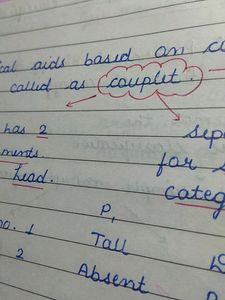 cal aids based on
called as couplet.
has 2
ments.
Lead.
for
categ
P,
no. 1 Tall
2 Absent